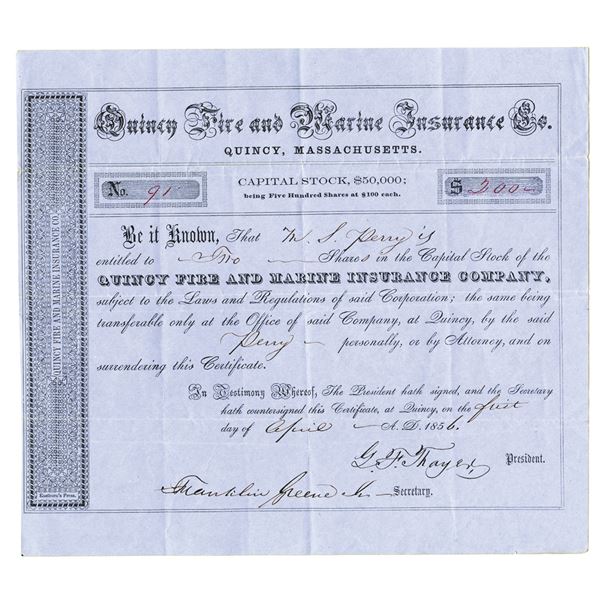 Quincy Fire and Marine Insurance Co.
QUINCY, MASSACHUSETTS.
No. 91
CAPITAL STOCK, $50,000;
being Five Hundred Shares at $100 each.
$ 200
Be it Known, That M. S. Perry is
entitled to Two Shares in the Capital Stock of the
QUINCY FIRE AND MARINE INSURANCE COMPANY,
subject to the Laws and Regulations of said Corporation; the same being
transferable only at the Office of said Company, at Quincy, by the said
Perry personally, or by Attorney, and on
surrendering this Certificate.
In Testimony Whereof, The President hath signed, and the Secretary
hath countersigned this Certificate, at Quincy, on the first
day of April A. D. 1856.
G. F. Thayer, President.
Franklin Greene Jr Secretary.
QUINCY FIRE AND MARINE INSURANCE CO.
Eastburn's Press.